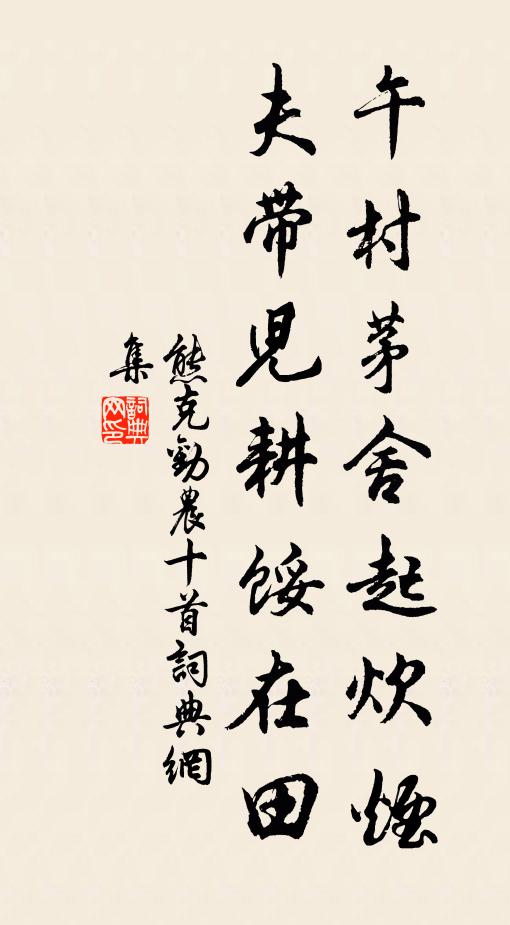 午村茅舍起炊煙
夫帶児耕餒在田
熊克勸農十首詞典網
集
詞典網印